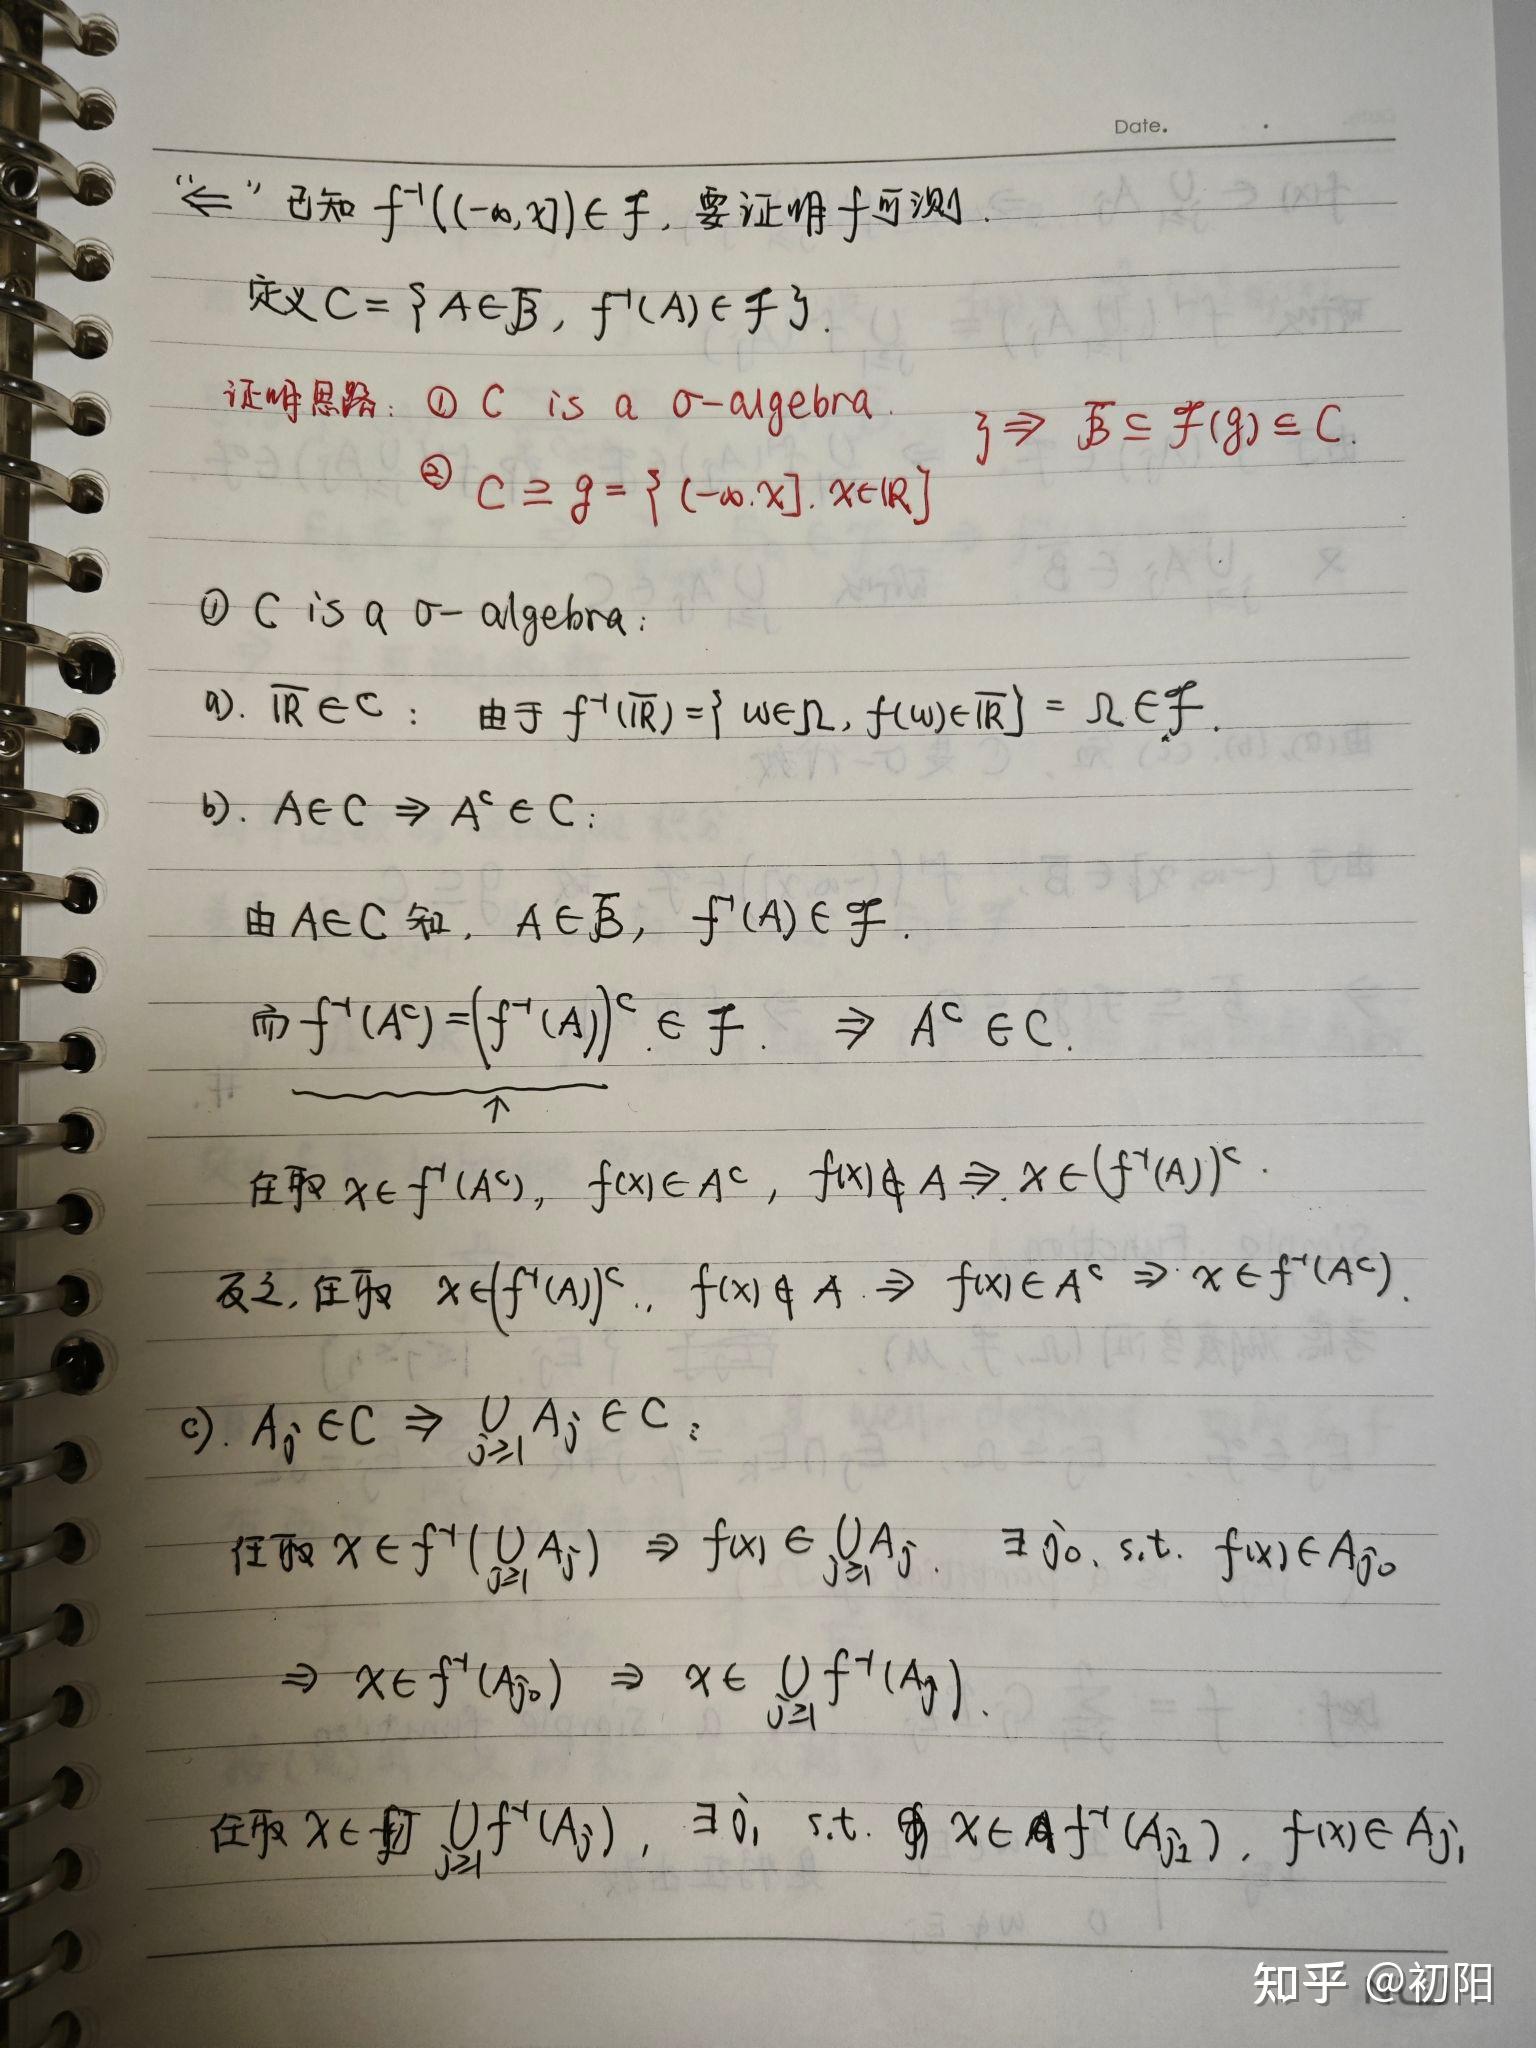 Date.
"⇐" 已知 f⁻¹((-∞,x])∈ℱ, 要证明 f 可测.
定义 C = { A∈B̅, f⁻¹(A)∈ℱ }.
证明思路: ① C is a σ-algebra.
② C ⊇ g = { (-∞.x]. x∈ℝ } } ⇒ B̅ ⊆ ℱ(g) ⊆ C.
① C is a σ-algebra:
a). ℝ̅ ∈ C : 由于 f⁻¹(ℝ̅) = { w∈Ω, f(w)∈ℝ̅ } = Ω ∈ ℱ.
b). A∈C ⇒ Aᶜ ∈ C:
由 A∈C 知, A∈B̅, f⁻¹(A) ∈ ℱ.
而 f⁻¹(Aᶜ) = (f⁻¹(A))ᶜ ∈ ℱ. ⇒ Aᶜ ∈ C.
↑
任取 x∈f⁻¹(Aᶜ), f(x)∈Aᶜ, f(x)∉A ⇒ x∈(f⁻¹(A))ᶜ.
反之, 任取 x∈(f⁻¹(A))ᶜ, f(x)∉A ⇒ f(x)∈Aᶜ ⇒ x∈f⁻¹(Aᶜ).
c). Aⱼ∈C ⇒ ⋃_{j≥1} Aⱼ ∈ C:
任取 x∈f⁻¹(⋃_{j≥1} Aⱼ) ⇒ f(x) ∈ ⋃_{j≥1} Aⱼ. ∃ j₀, s.t. f(x)∈A_{j₀}
⇒ x∈f⁻¹(A_{j₀}) ⇒ x∈ ⋃_{j≥1} f⁻¹(Aⱼ).
任取 x∈ ⋃_{j≥1} f⁻¹(Aⱼ), ∃ j₁ s.t. x∈ f⁻¹(A_{j₁}), f(x)∈A_{j₁}
知乎 @初阳